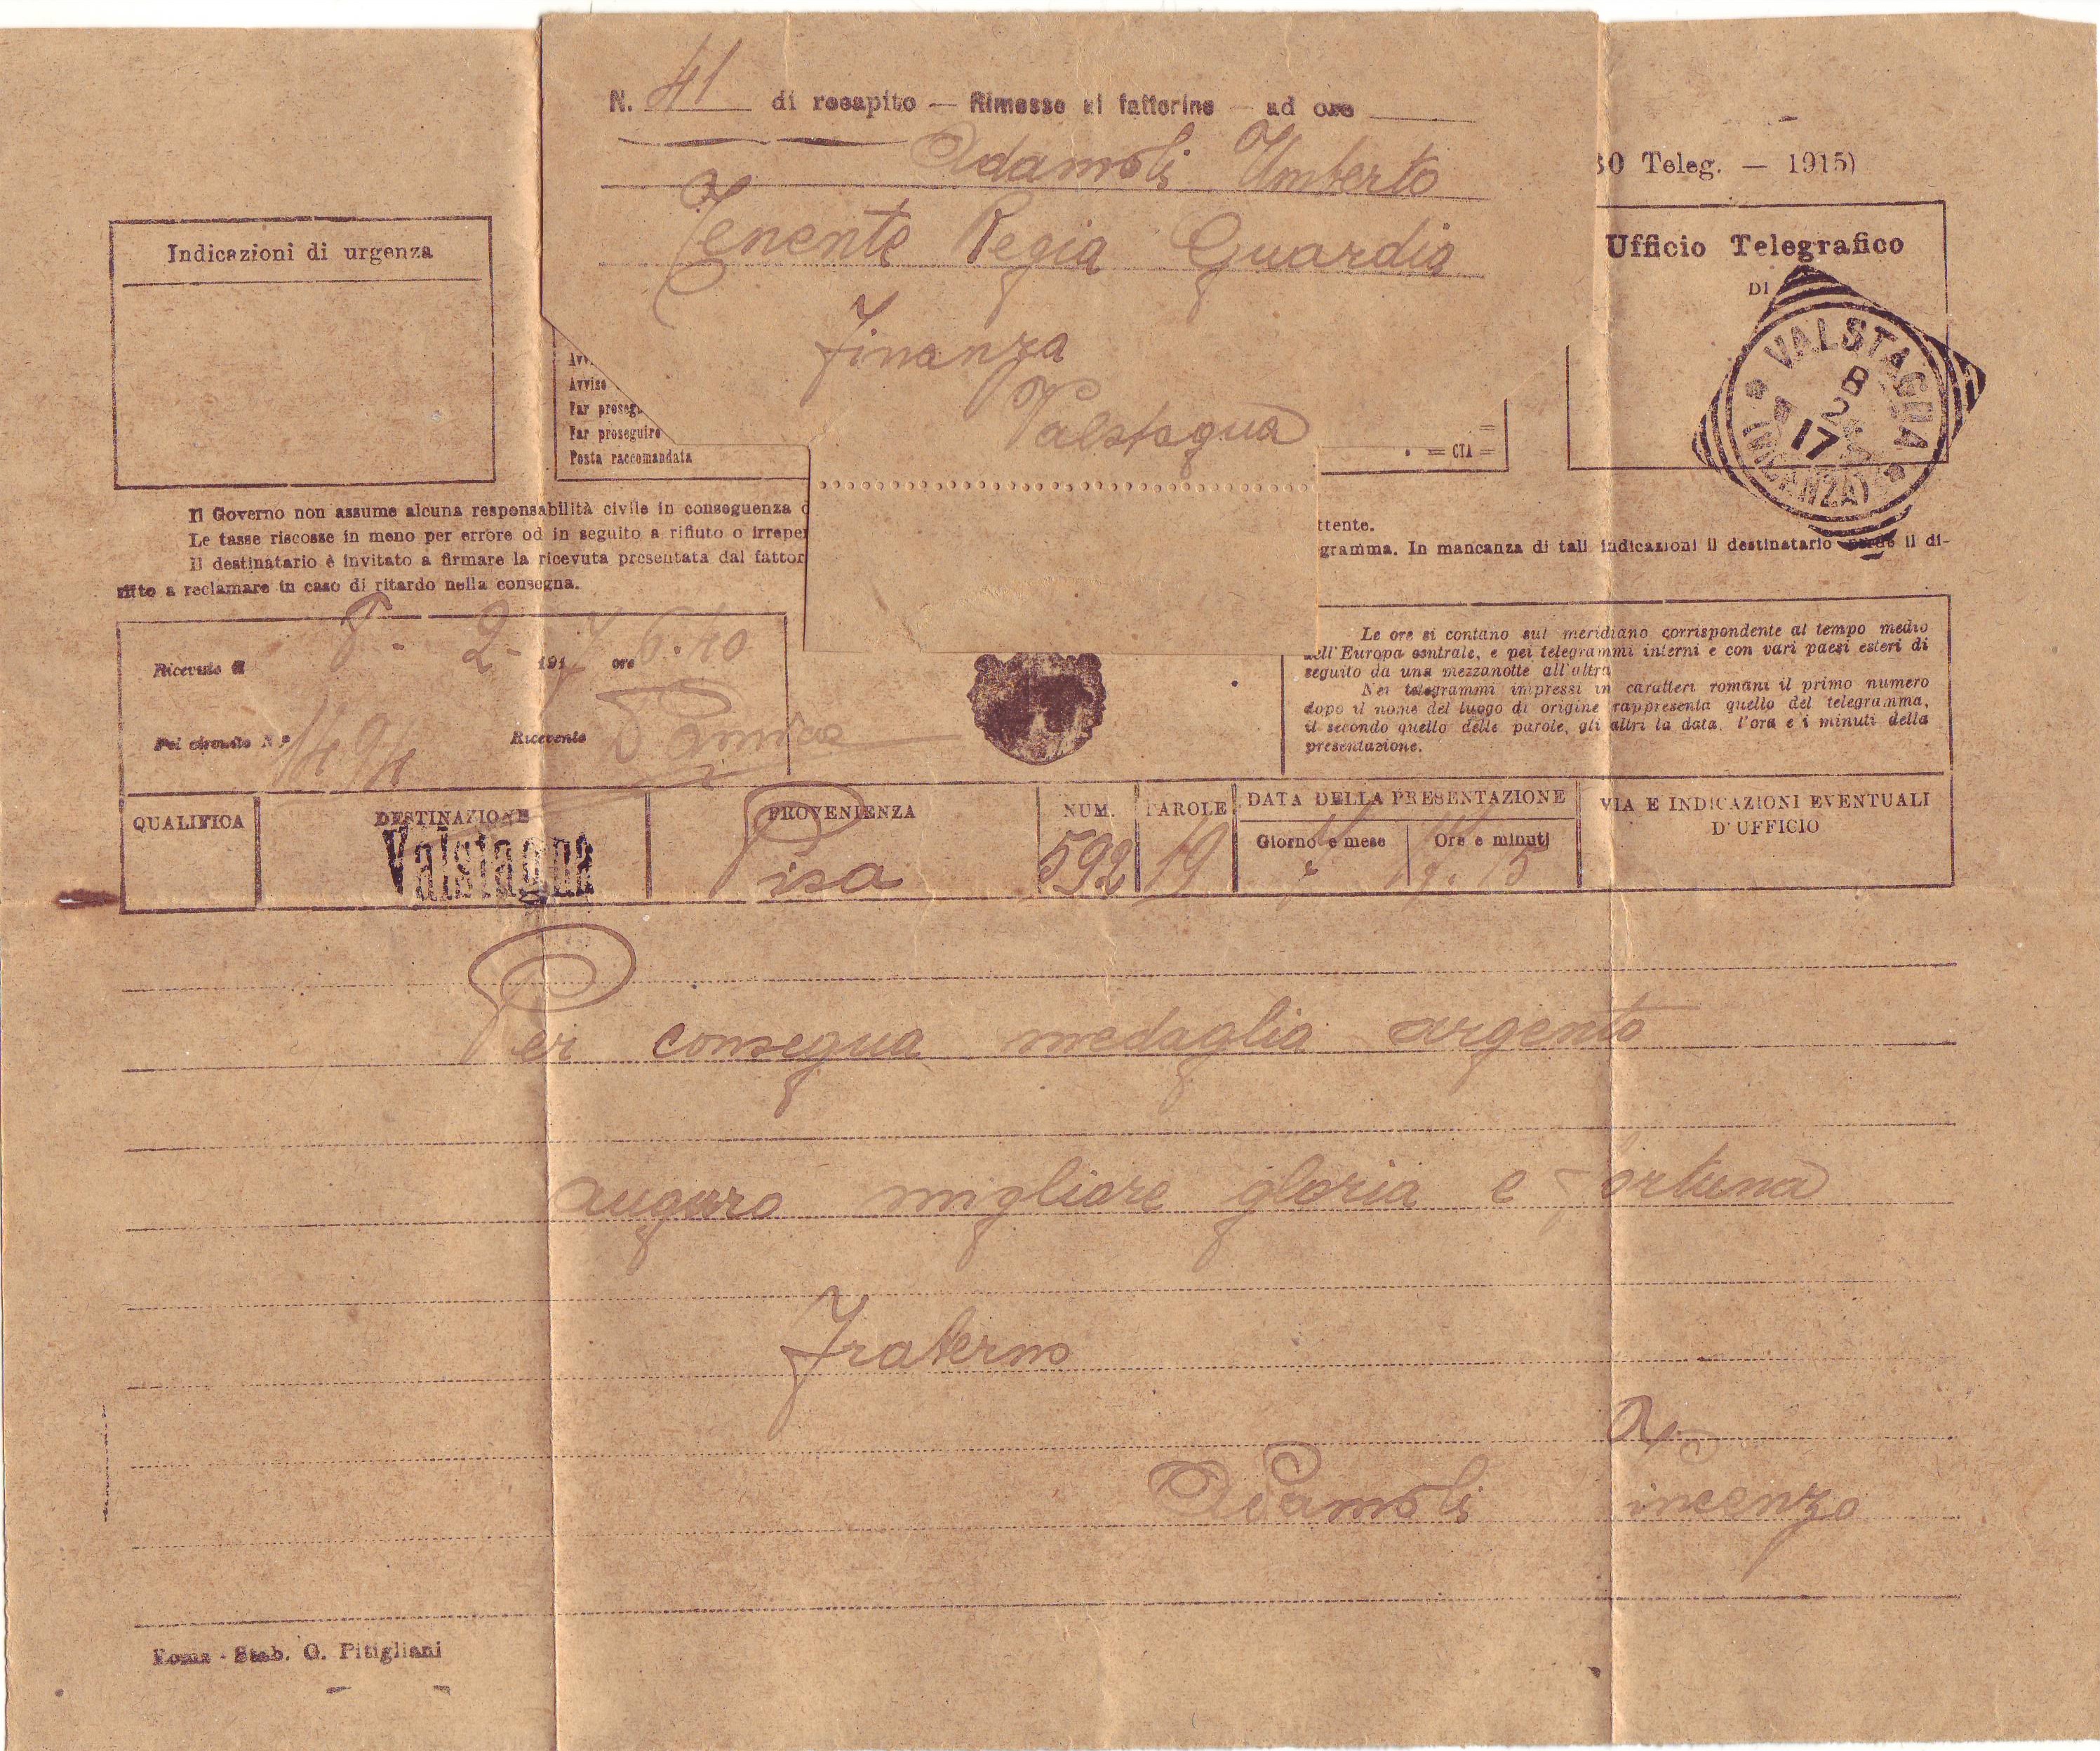 N. 41 di recapito — Rimesso al fattorino — ad ore
Adamoli Umberto
Tenente Regia Guardia
Finanza
Valstagna
30 Teleg. — 1915)
Indicazioni di urgenza
Ufficio Telegrafico
DI
VALSTAGNA
8
2
17
(VICENZA)
Avviso
Far prosegu
Far proseguire
Posta raccomandata
= CTA =
Il Governo non assume alcuna responsabilità civile in conseguenza d
Le tasse riscosse in meno per errore od in seguito a rifiuto o irreper
Il destinatario è invitato a firmare la ricevuta presentata dal fattor
ritto a reclamare in caso di ritardo nella consegna.
ttente.
gramma. In mancanza di tali indicazioni il destinatario perde il di-
Ricevuto il 8 - 2 - 1917 ore 6.40
Pel circuito N.° Ricevente
Le ore si contano sul meridiano corrispondente al tempo medio
dell'Europa centrale, e pei telegrammi interni e con vari paesi esteri di
seguito da una mezzanotte all'altra
Nei telegrammi impressi in caratteri romani il primo numero
dopo il nome del luogo di origine rappresenta quello del telegramma,
il secondo quello delle parole, gli altri la data, l'ora e i minuti della
presentazione.
QUALIFICA DESTINAZIONE PROVENIENZA NUM. PAROLE DATA DELLA PRESENTAZIONE VIA E INDICAZIONI EVENTUALI
D'UFFICIO
Giorno e mese Ore e minuti
Valstagna Pisa 592 19 7 19.15
Per consegna medaglia argento
auguro migliore gloria e fortuna
Fraterno
Adamoli Vincenzo
Roma - Stab. G. Pitigliani